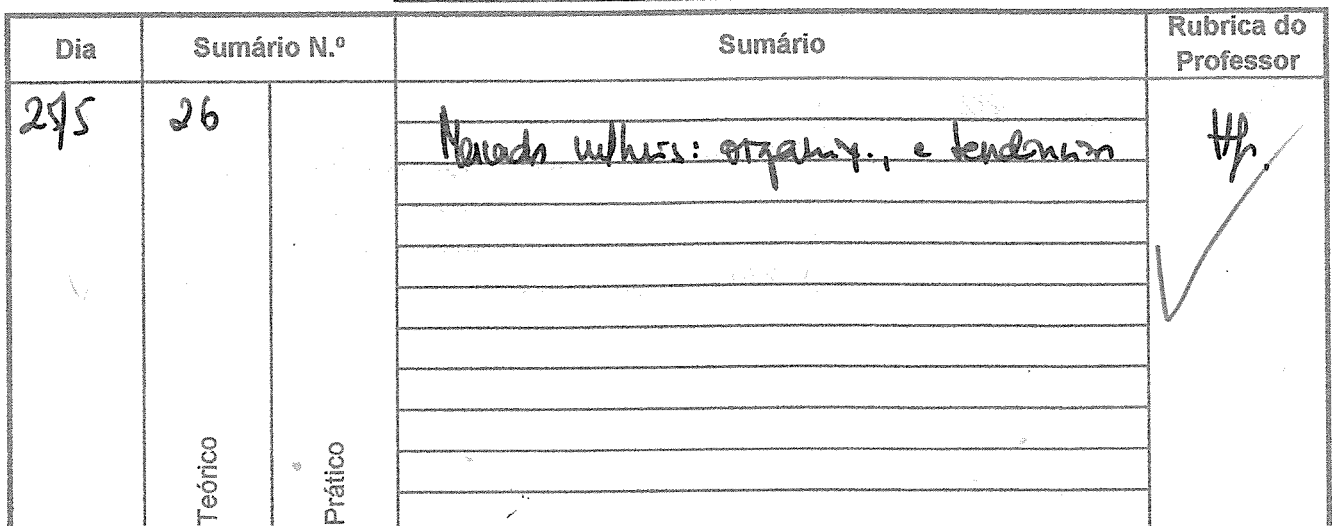 Dia Sumário N.º Sumário Rubrica do Professor
26
Mercado culturais: organiz., e tendências
Teórico
Prático